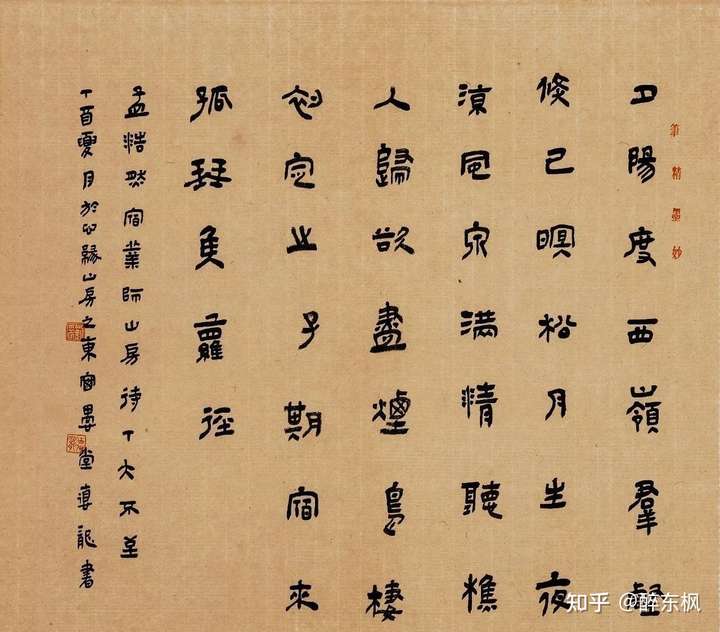 筆精墨妙
夕陽度西嶺羣壑
倏已暝松月生夜
涼風泉滿清聽樵
人歸欲盡煙鳥棲
初定之子期宿來
孤琴候蘿徑
孟浩然宿業師山房待丁大不至
丁酉夏月於心緣山房之東窗堂龍書
知乎 @醉东枫